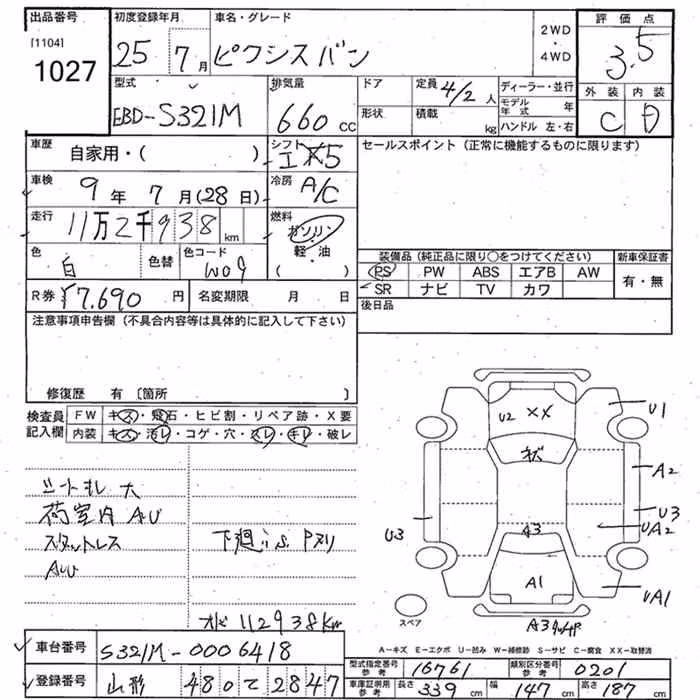 出品番号 初度登録年月 車名・グレード 評価点
[1104] 1027 25年 7月 ピクシスバン 2WD・4WD 3.5
型式 排気量 ドア 定員 4/2人 ディーラー・並行 外装 内装
EBD-S321M 660cc 形状 積載 kg モデル年式 年 C D
ハンドル 左・右
車歴 自家用・( ) シフト 5 セールスポイント (正常に機能するものに限ります)
車検 9年 7月(28日) 冷房 A/C
走行 11万2千938km 燃料 ガソリン
軽・油
( )
色 白 色替 色コード W09
装備品 (純正品に限り〇をつけてください) 新車保証書
PS PW ABS エアB AW 有・無
SR ナビ TV カワ
R券 ¥7,690円 名変期限 月 日 後日品
注意事項申告欄 (不具合内容等は具体的に記入して下さい)
修復歴 有 [箇所 ]
検査員記入欄 FW キズ・飛石・ヒビ割・リペア跡・X要
内装 キズ・汚レ・コゲ・穴・スレ・キレ・破レ
U2 XX U1
キズ
A2
シートキレ 大
荷室内 AU
U3 A3 U3
UA2
スタットレス 下廻り S Pヌリ
AUU
A1 UA1
メーター 112938km
スペア A3
A-キズ E-エクボ U-凹み W-補修跡 S-サビ C-腐食 XX-取替済
車台番号 S321M-0006418
型式指定番号 参考 16761 類別区分番号 参考 0201
登録番号 山形 480 て 2847
車庫証明用 参考 長さ 339cm 幅 147cm 高さ 187cm